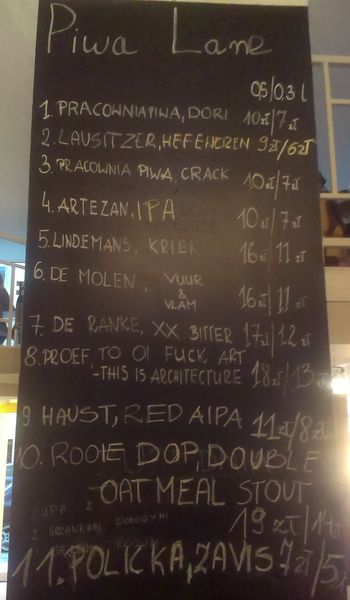 Piwa Lane
0,5/0,3 l
1. PRACOWNIA PIWA, DORI 10zł/7zł
2. LAUSITZER, HEFEWEIZEN 9zł/6zł
3. PRACOWNIA PIWA, CRACK 10zł/7zł
4. ARTEZAN, IPA 10zł/7zł
5. LINDEMANS, KRIEK 16zł/11zł
6. DE MOLEN, VUUR
&
VLAM 16zł/11zł
7. DE RANKE, XX BITTER 17zł/12zł
8. PROEF, TO ØL FUCK ART
-THIS IS ARCHITECTURE 18zł/13zł
9. HAUST, RED AIPA 11zł/8zł
10. ROOIE DOP, DOUBLE
OATMEAL STOUT
19zł/14zł
11. POLICKA, ZAVIS 7zł/5